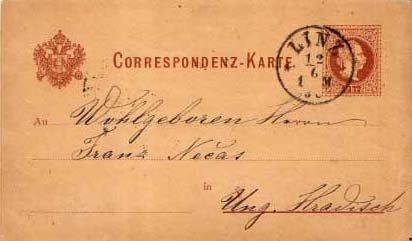 CORRESPONDENZ-KARTE.
LINZ
12
6
An Wohlgeboren Herrn
Franz Nečas
in
Ung. Hradisch